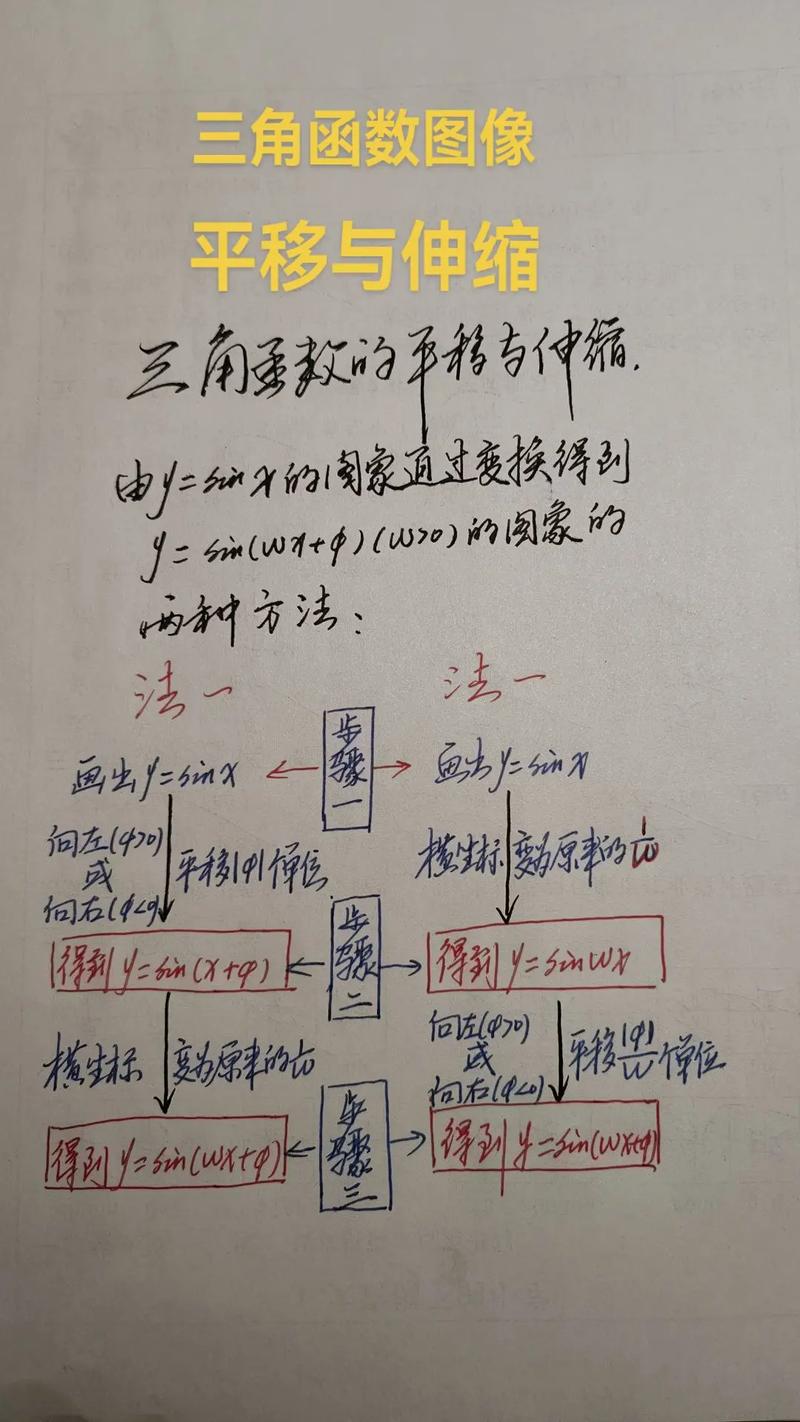 三角函数图像
平移与伸缩
三角函数的平移与伸缩.
由y=sinx的图象通过变换得到
y=sin(ωx+φ)(ω>0)的图象的
两种方法:
法一
法一
步骤一
画出y=sinx
画出y=sinx
向左(φ>0)
或
向右(φ<0)
平移|φ|个单位
横坐标变为原来的1/ω
步骤二
得到y=sin(x+φ)
得到y=sinωx
横坐标变为原来的1/ω
向左(φ>0)
或
向右(φ<0)
平移|φ|/ω个单位
步骤三
得到y=sin(ωx+φ)
得到y=sin(ωx+φ)